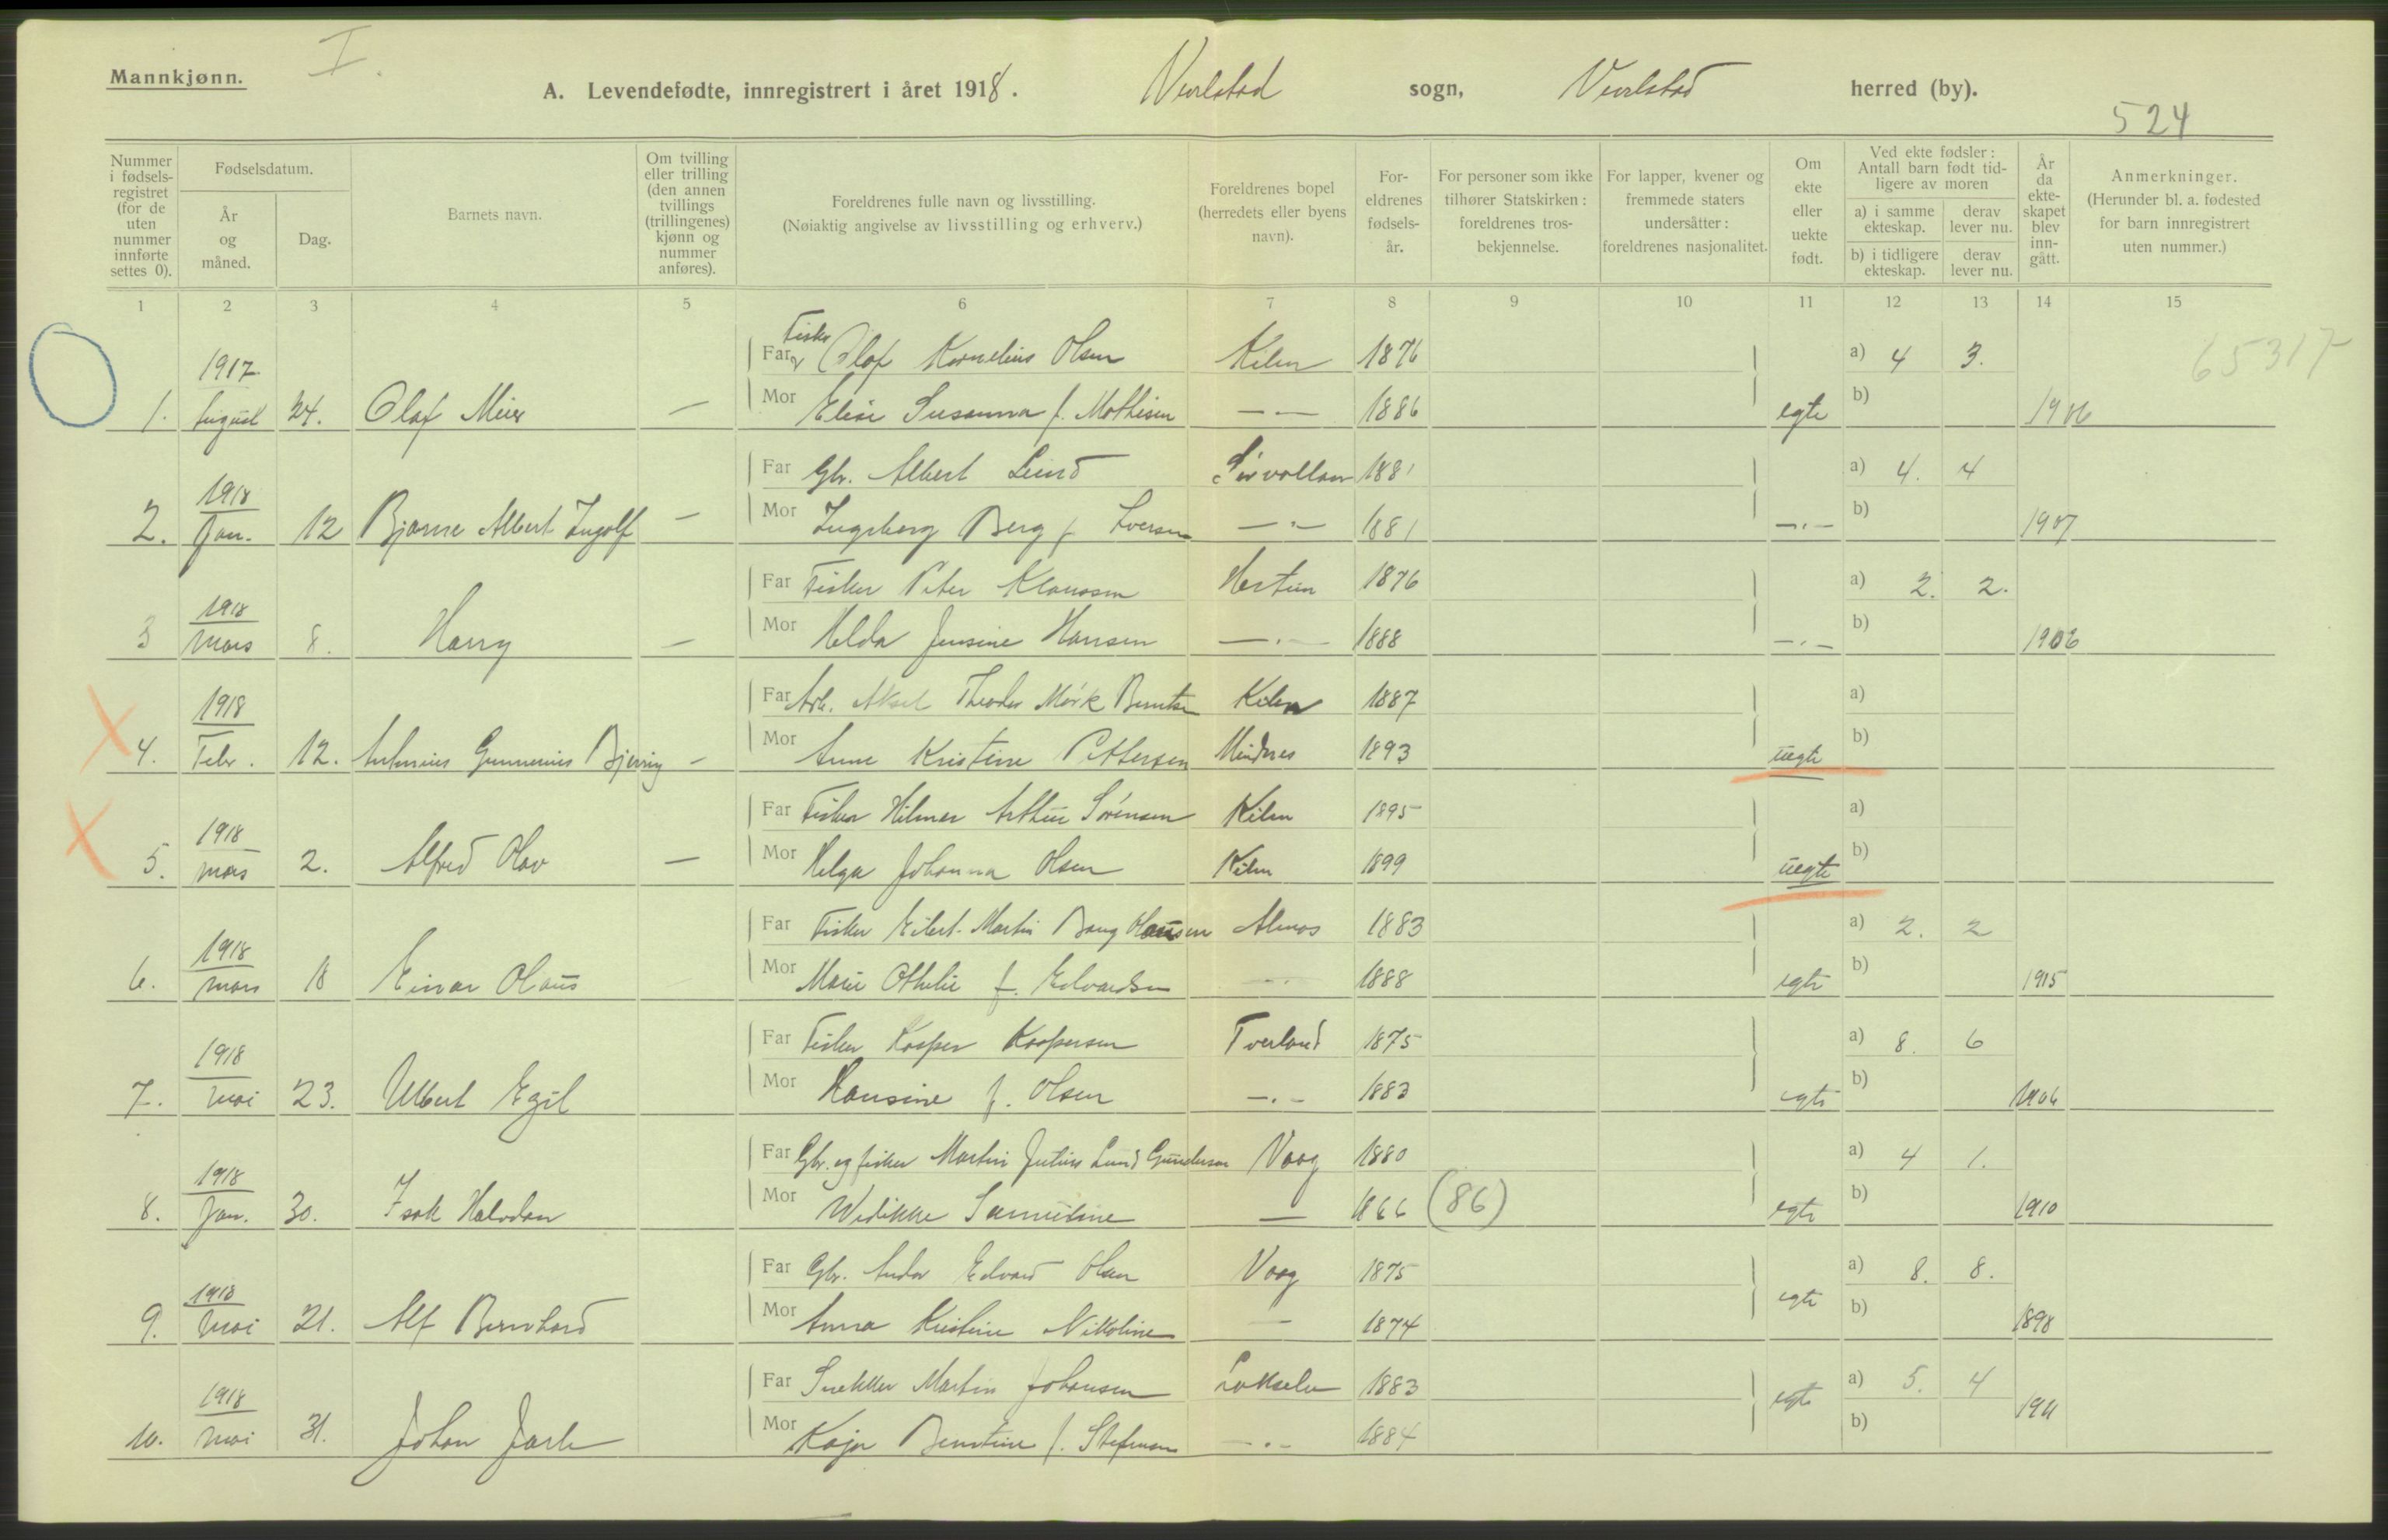 Mannkjønn.
I.
A. Levendefødte, innregistrert i året 1918. Vevelstad sogn, Vevelstad herred (by).
524
Nummer i fødsels-registret (for de uten nummer innførte settes 0).
Fødselsdatum.
År og måned.
Dag.
Barnets navn.
Om tvilling eller trilling (den annen tvillings (trillingenes) kjønn og nummer anføres).
Foreldrenes fulle navn og livsstilling.
(Nøiaktig angivelse av livsstilling og erhverv.)
Foreldrenes bopel (herredets eller byens navn).
For-eldrenes fødsels-år.
For personer som ikke tilhører Statskirken: foreldrenes tros-bekjennelse.
For lapper, kvener og fremmede staters undersåtter: foreldrenes nasjonalitet.
Om ekte eller uekte født.
Ved ekte fødsler: Antall barn født tid-ligere av moren
a) i samme ekteskap.
derav lever nu.
b) i tidligere ekteskap.
derav lever nu.
År da ekte-skapet blev inn-gått.
Anmerkninger.
(Herunder bl. a. fødested for barn innregistrert uten nummer.)
1 2 3 4 5 6 7 8 9 10 11 12 13 14 15
Fisker
1917 Far Olaf Kornelius Olsen Kilen 1876 a) 4 3. 65317
1. August 24. Olaf Meier — Mor Elise Susanna f. Mathisen —·— 1886 egte b) 1906
1918 Far Gbr. Albert Lund Sørvollan 1881 a) 4. 4
2. Jan. 12 Bjarne Albert Ingolf — Mor Ingeborg Berg f. Iversen —·— 1881 —·— b) 1907
1918 Far Fisker Peter Klaussen 1876 a) 2. 2.
3 Mars 8. Harry — Mor Jensine Hansen —·— 1888 —·— b) 1906
1918 Far Arb. Aksel Theodor Mørk Berntsen Kilen 1887 a)
4. Febr. 12. Antonius Gunnerius Bjerring — Mor Anne Kristine Pettersen Mindnes 1893 uegte b)
1918 Far Fisker Hilmar Arthur Sørensen Kilen 1895 a)
5. Mars 2. Alfred Olav — Mor Helga Johanna Olsen Kilen 1899 uegte b)
1918 Far Fisker Eilert Martin Bang Olausen Alsnos 1883 a) 2. 2
6. Mars 18 Einar Olaus Mor Marie Othelie f. Edvardsen 1888 egte b) 1915
1918 Far Fisker Kasper Kaspersen Tverland 1875 a) 8. 6
7. Mai 23. Albert Egil Mor Hansine f. Olsen —·— 1883 egte b) 1906
1918 Far Gbr. og fisker Martin Julius Lund Gundersen Vaag 1880 a) 4 1.
8. Jan. 30. Isak Halvdan Mor Wedikke Samueline — 1866 (86) egte b) 1910
1918 Far Gbr. Andor Edvard Olsen Vaag 1875 a) 8. 8.
9. Mai 21. Alf Bernhard Mor Anna Kristine Nikoline — 1874 egte b) 1898
1918 Far Snekker Martin Johansen 1883 a) 5. 4
10. Mai 31. Johan Jarle Mor Kaja Berntine f. Stefensen —·— 1884 egte b) 1911